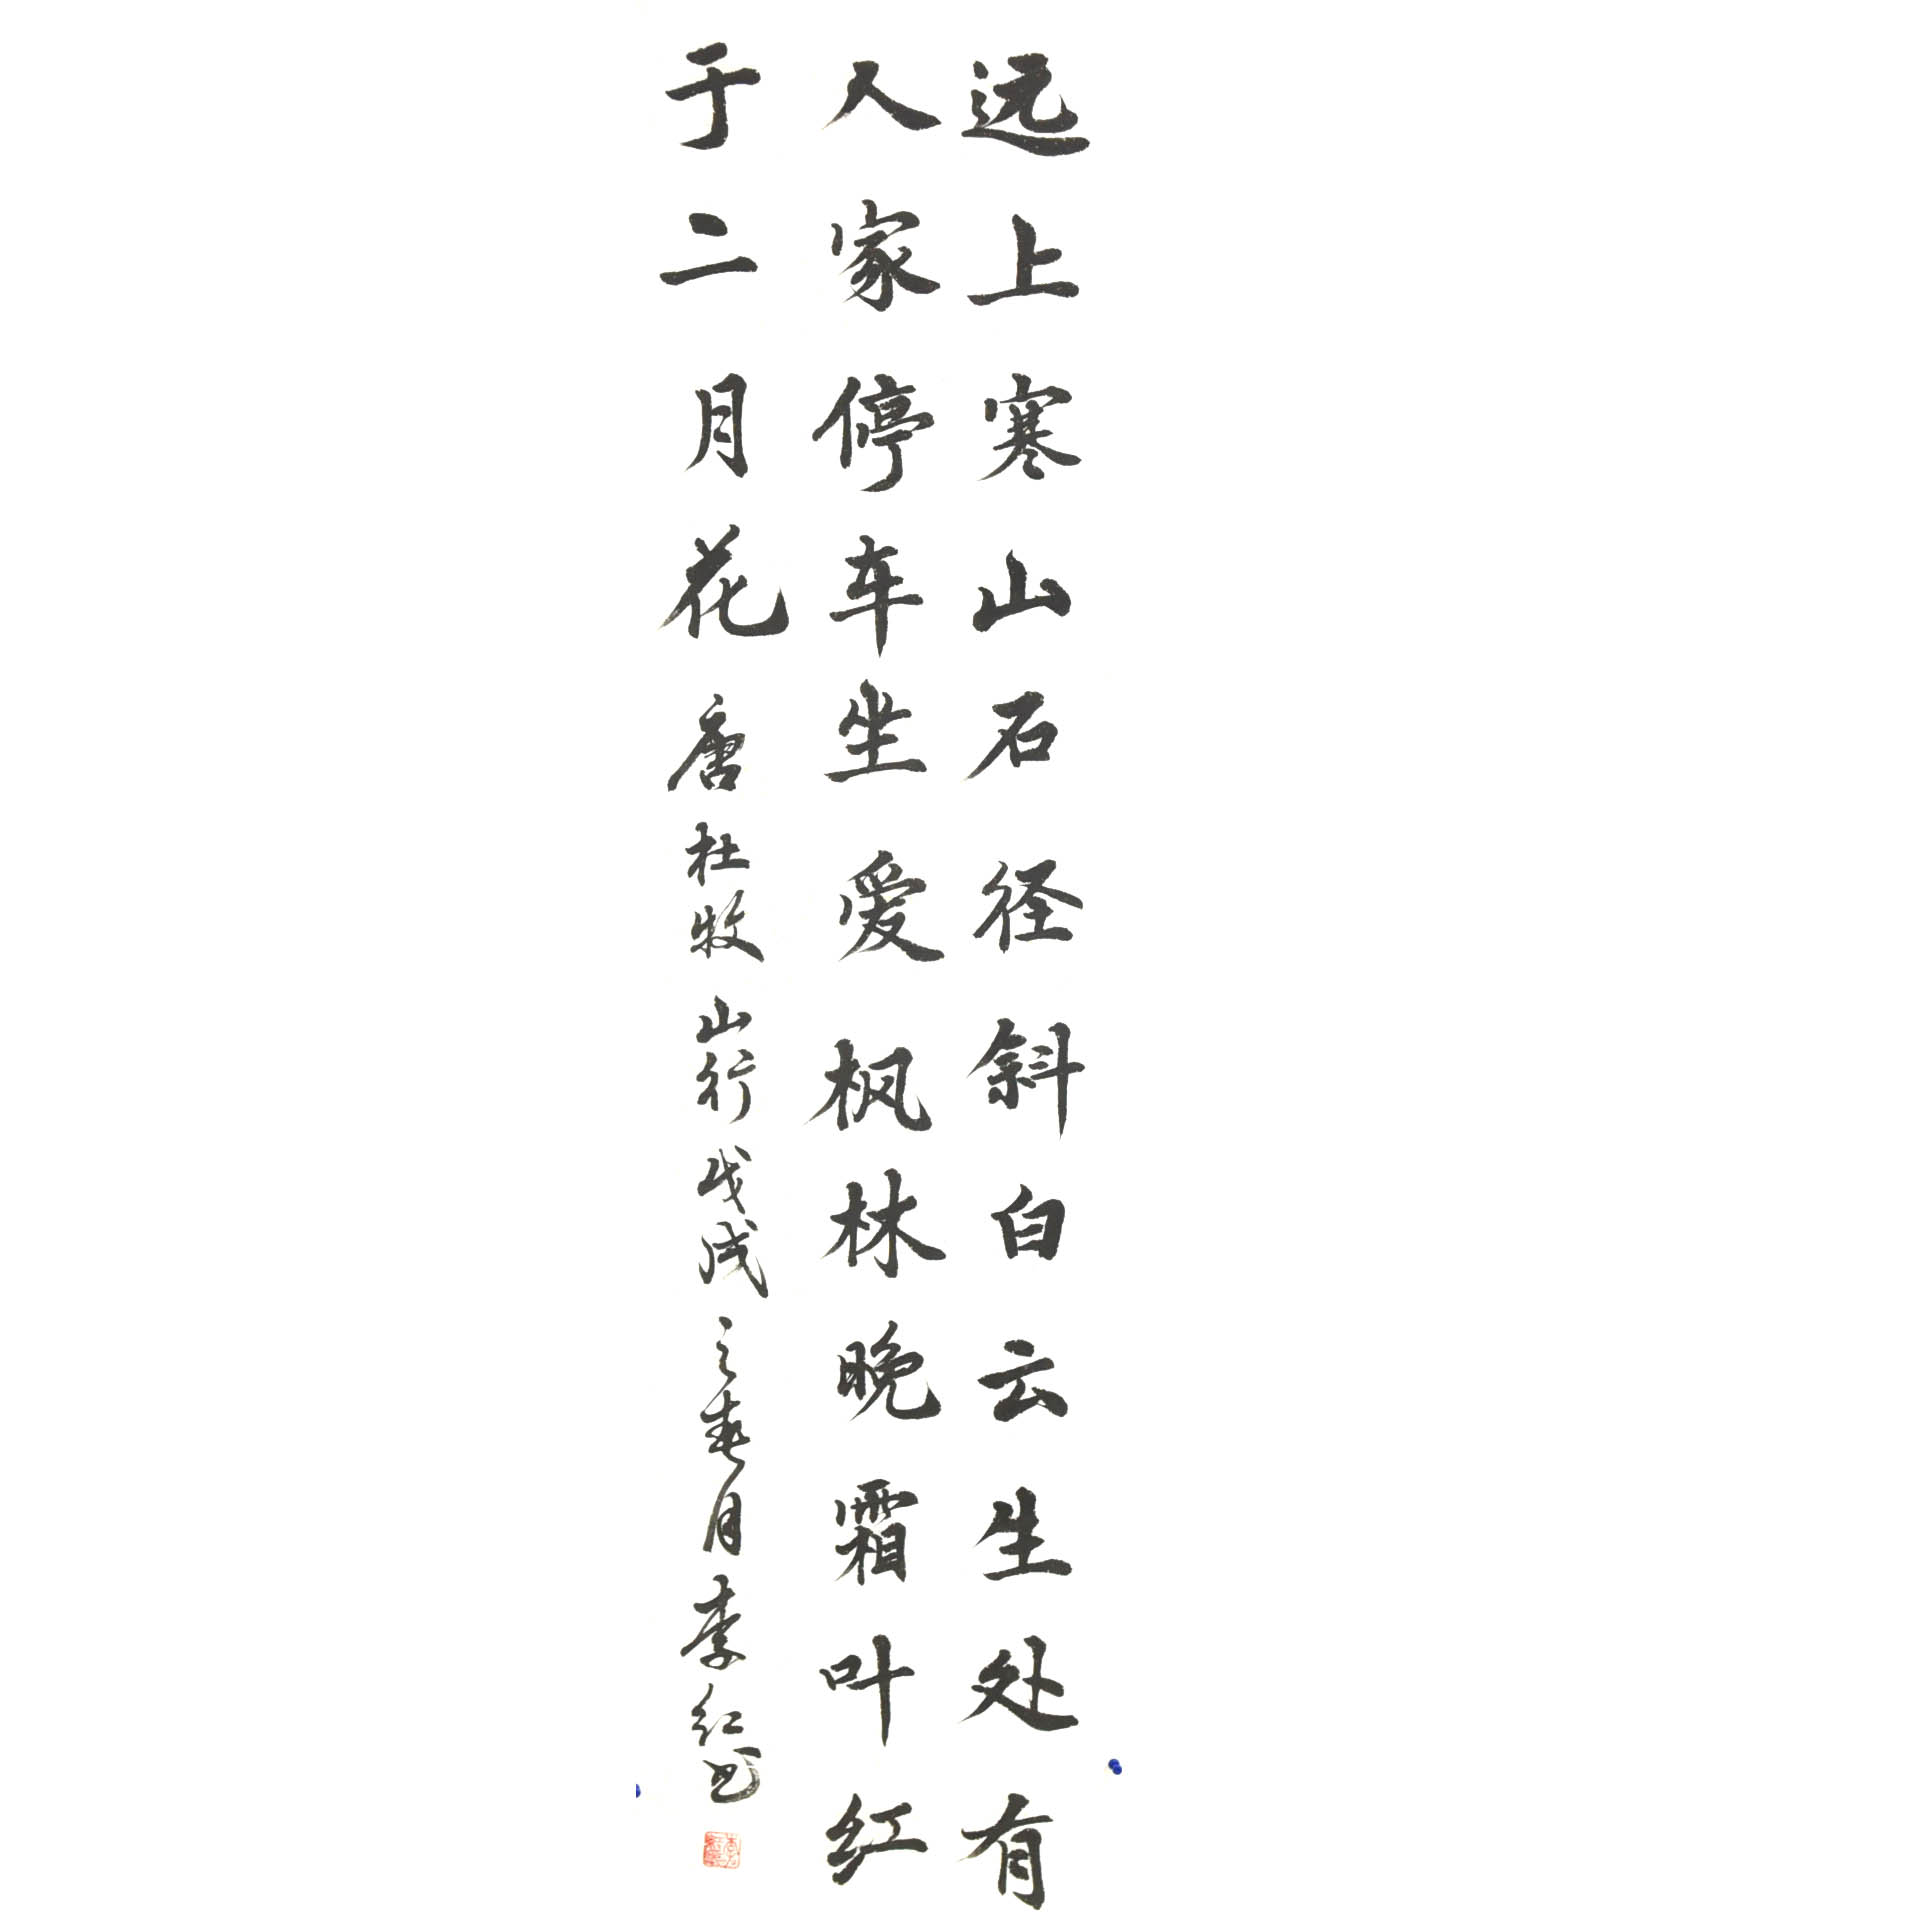 远上寒山石径斜白云生处有
人家停车坐爱枫林晚霜叶红
于二月花 唐杜牧山行戊戌之春月李红书